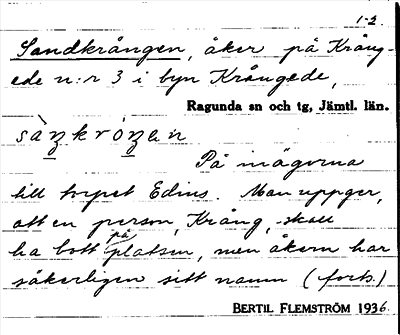 1-2.
Sandkrången, åker på Kräng-
ede n:r 3 i byn Krångede,
Ragunda sn och tg, Jämtl. län.
På inägorna
till torpet Edins. Man uppger,
att en person, Krång, skall
ha bott på platsen, men åkern har
säkerligen sitt namn (forts.)
BERTIL FLEMSTRÖM 1936.